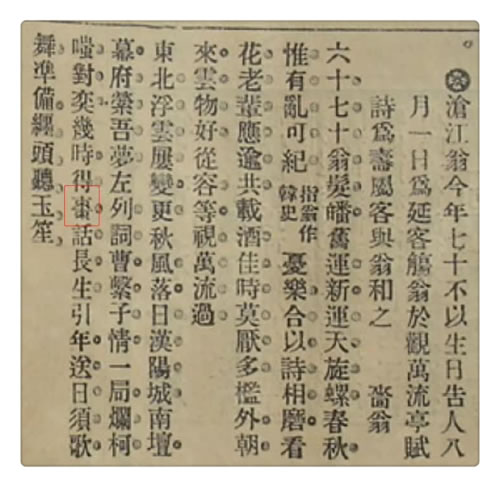 滄江翁今年七十不以生日告人八
月一日爲延客觴翁於觀萬流亭賦
詩爲壽屬客與翁和之 嗇翁
六十七十翁髮皤舊運新運天旋螺春秋
惟有亂可紀指翁作韓史憂樂合以詩相磨看
花老輩應逾共載酒佳時莫厭多檻外朝
來雲物好從容等視萬流過
東北浮雲屢變更秋風落日漢陽城南壇
幕府縈吾夢左列詞曹繫子情一局爛柯
嗤對奕幾時得棗話長生引年送日須歌
舞準備纏頭聽玉笙